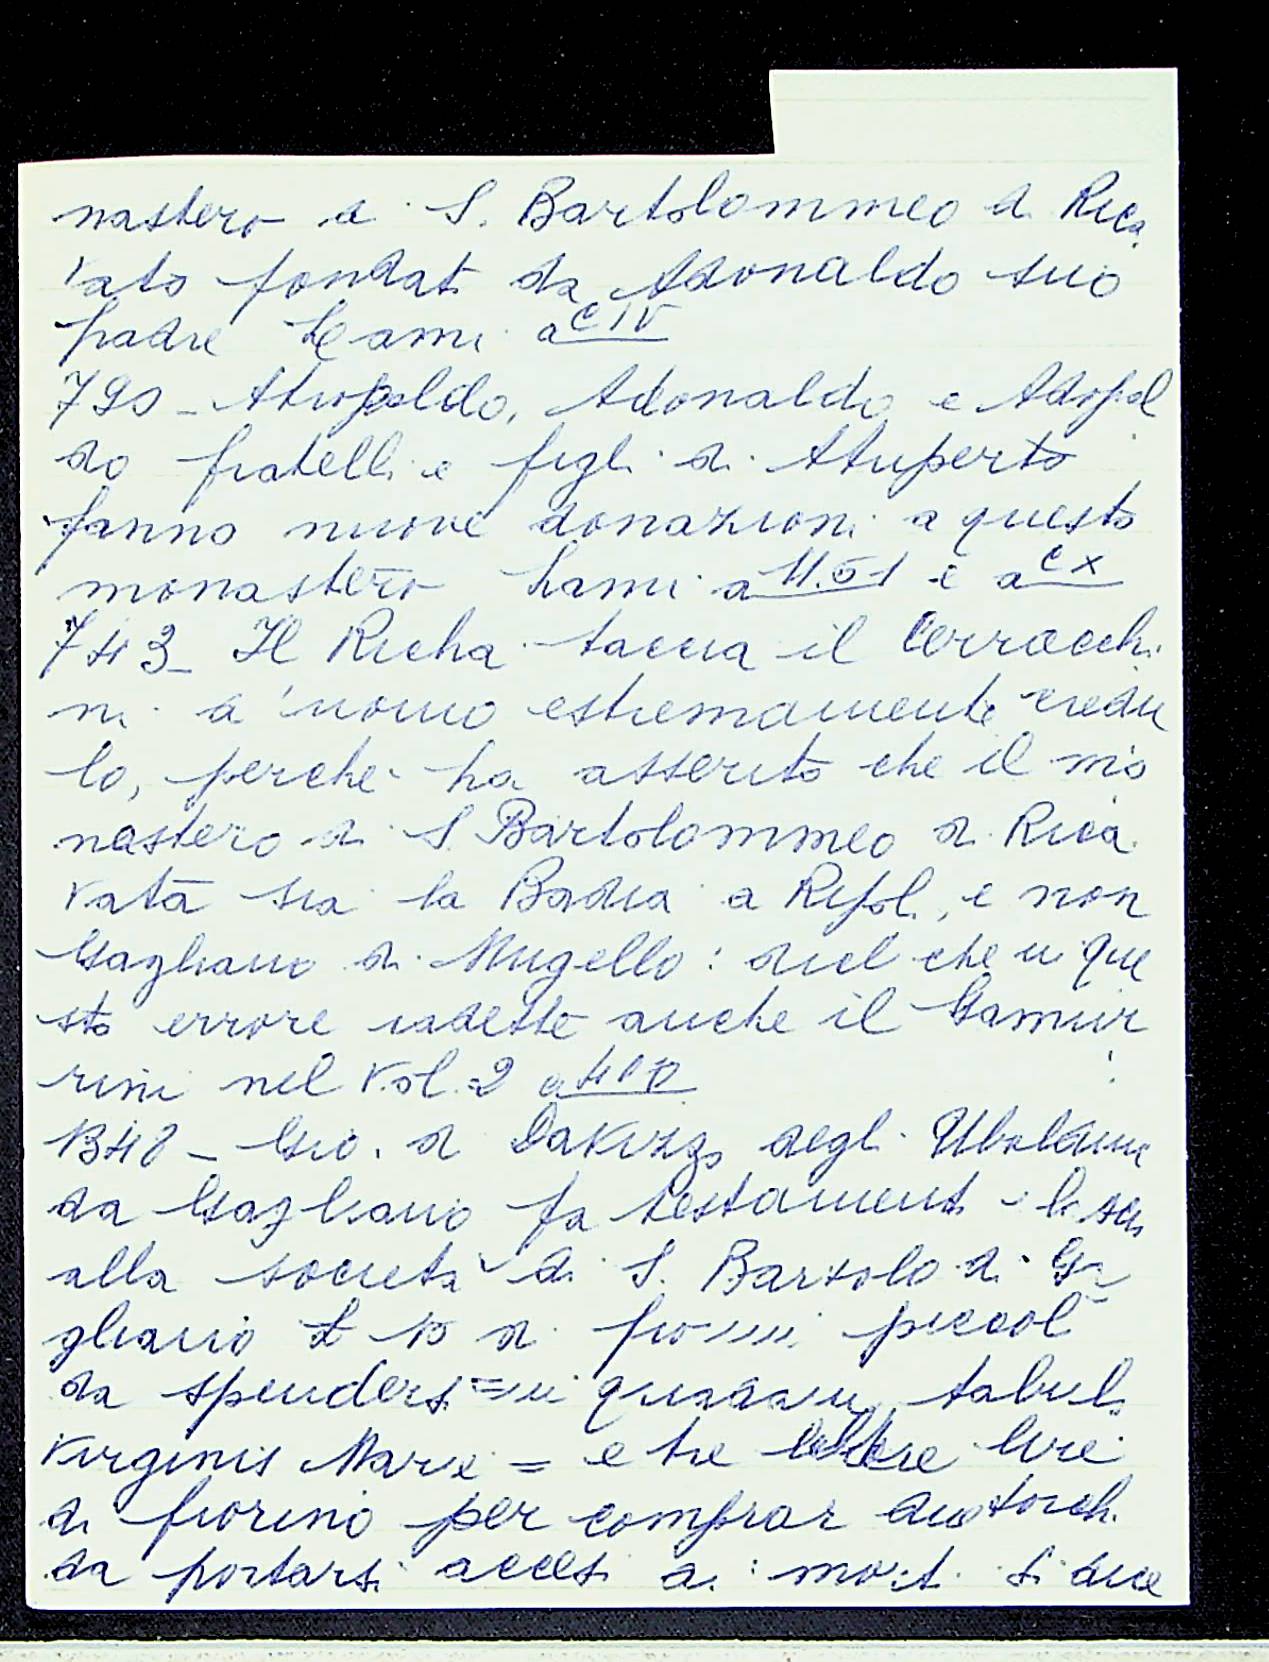 nastero di S. Bartolommeo di Rica
vato fondato da Adonaldo suo
padre Lami a CIV
790 - Atropaldo, Adonaldo e Adopal
do fratelli e figli di Atuperto
fanno nuove donazioni a questo
monastero Lami a 11.51 e a CX
743 - Il Richa taccia il Cerracchi
ni di uomo estremamente credu
lo, perche ha asserito che il mo
nastero di S. Bartolommeo di Rica
vata sia la Badia a Ripoli, e non
Gagliano di Mugello: dice che in que
sto errore cadette anche il Gamur
rini nel Vol. 2 a
1348 - Gio. di degli Ubaldini
da Gagliano fa testamento e lascia
alla società di S. Bartolo di Ga
gliano £ 10 di fiorini piccoli
da spendersi = in quadam tabula
Virginis Marie = e tre lire
di fiorino per comprar due torchi
da portarsi accesi ai morti. Si dice